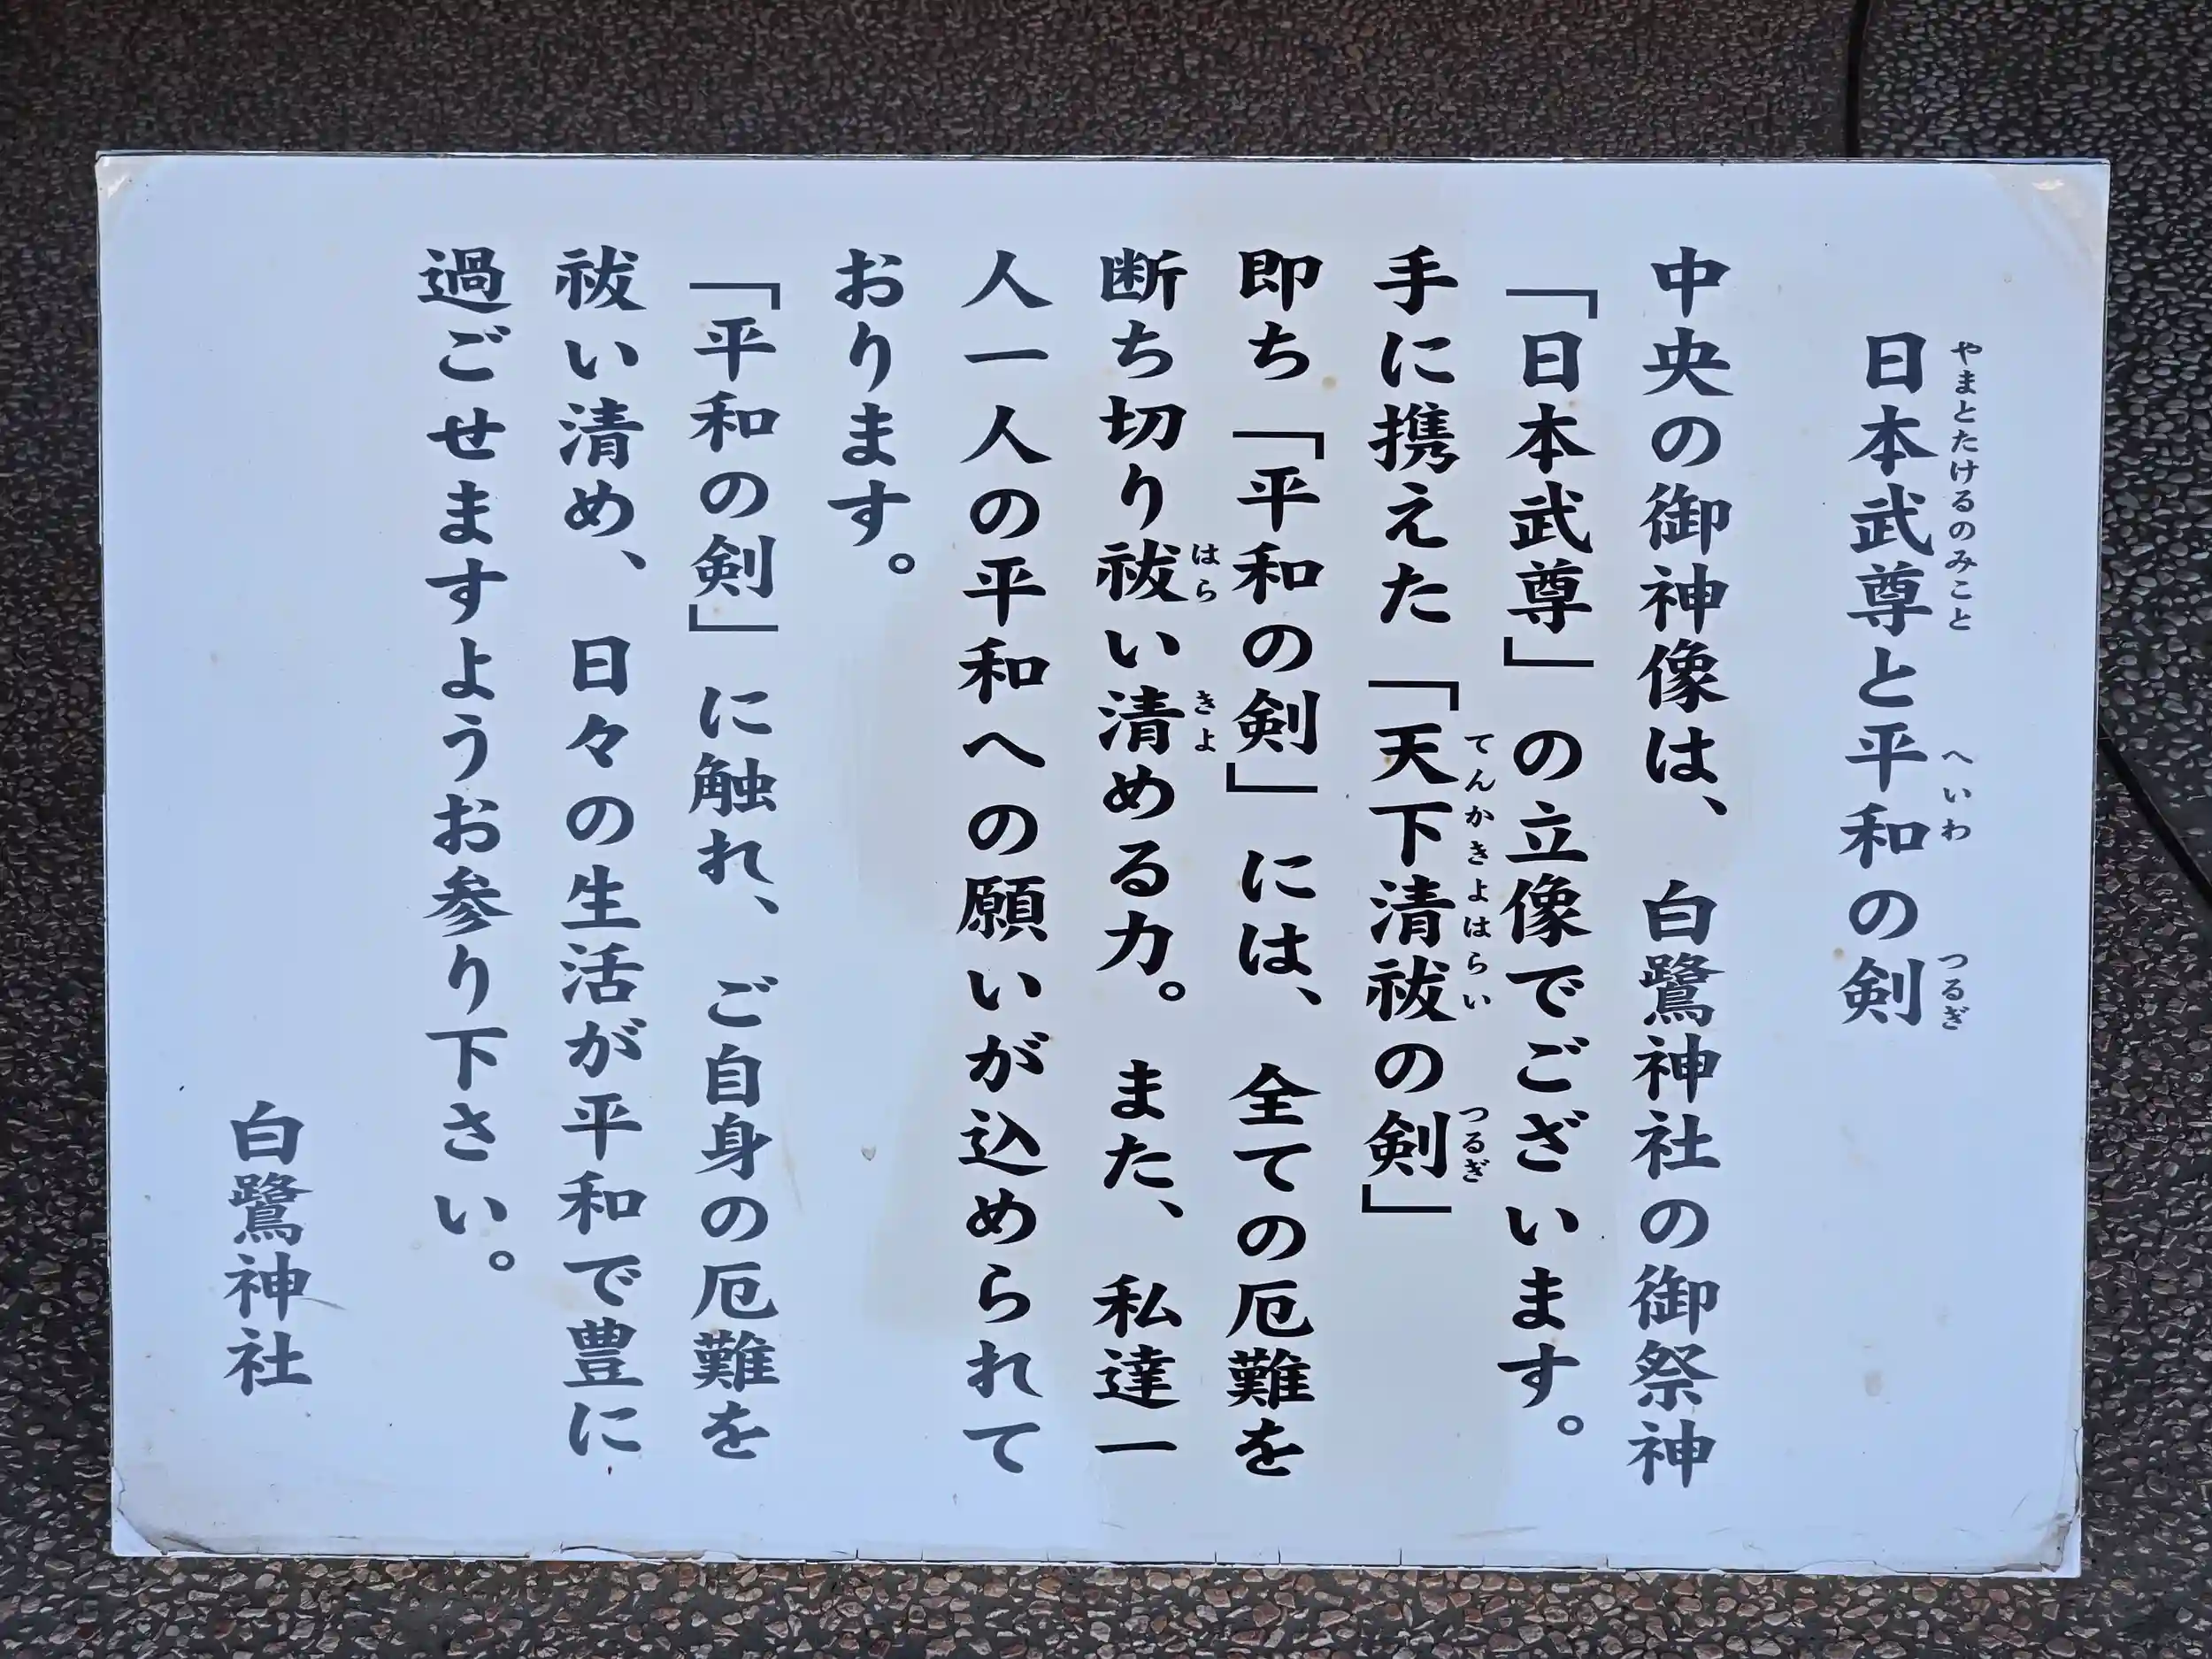 日本武尊と平和の剣
やまとたけるのみこと　へいわ　つるぎ
中央の御神像は、白鷺神社の御祭神
「日本武尊」の立像でございます。
手に携えた「天下清祓の剣」
てんかきよはらい　つるぎ
即ち「平和の剣」には、全ての厄難を
断ち切り祓い清める力。また、私達一
はら　きよ
人一人の平和への願いが込められて
おります。
「平和の剣」に触れ、ご自身の厄難を
祓い清め、日々の生活が平和で豊に
過ごせますようお参り下さい。
白鷺神社